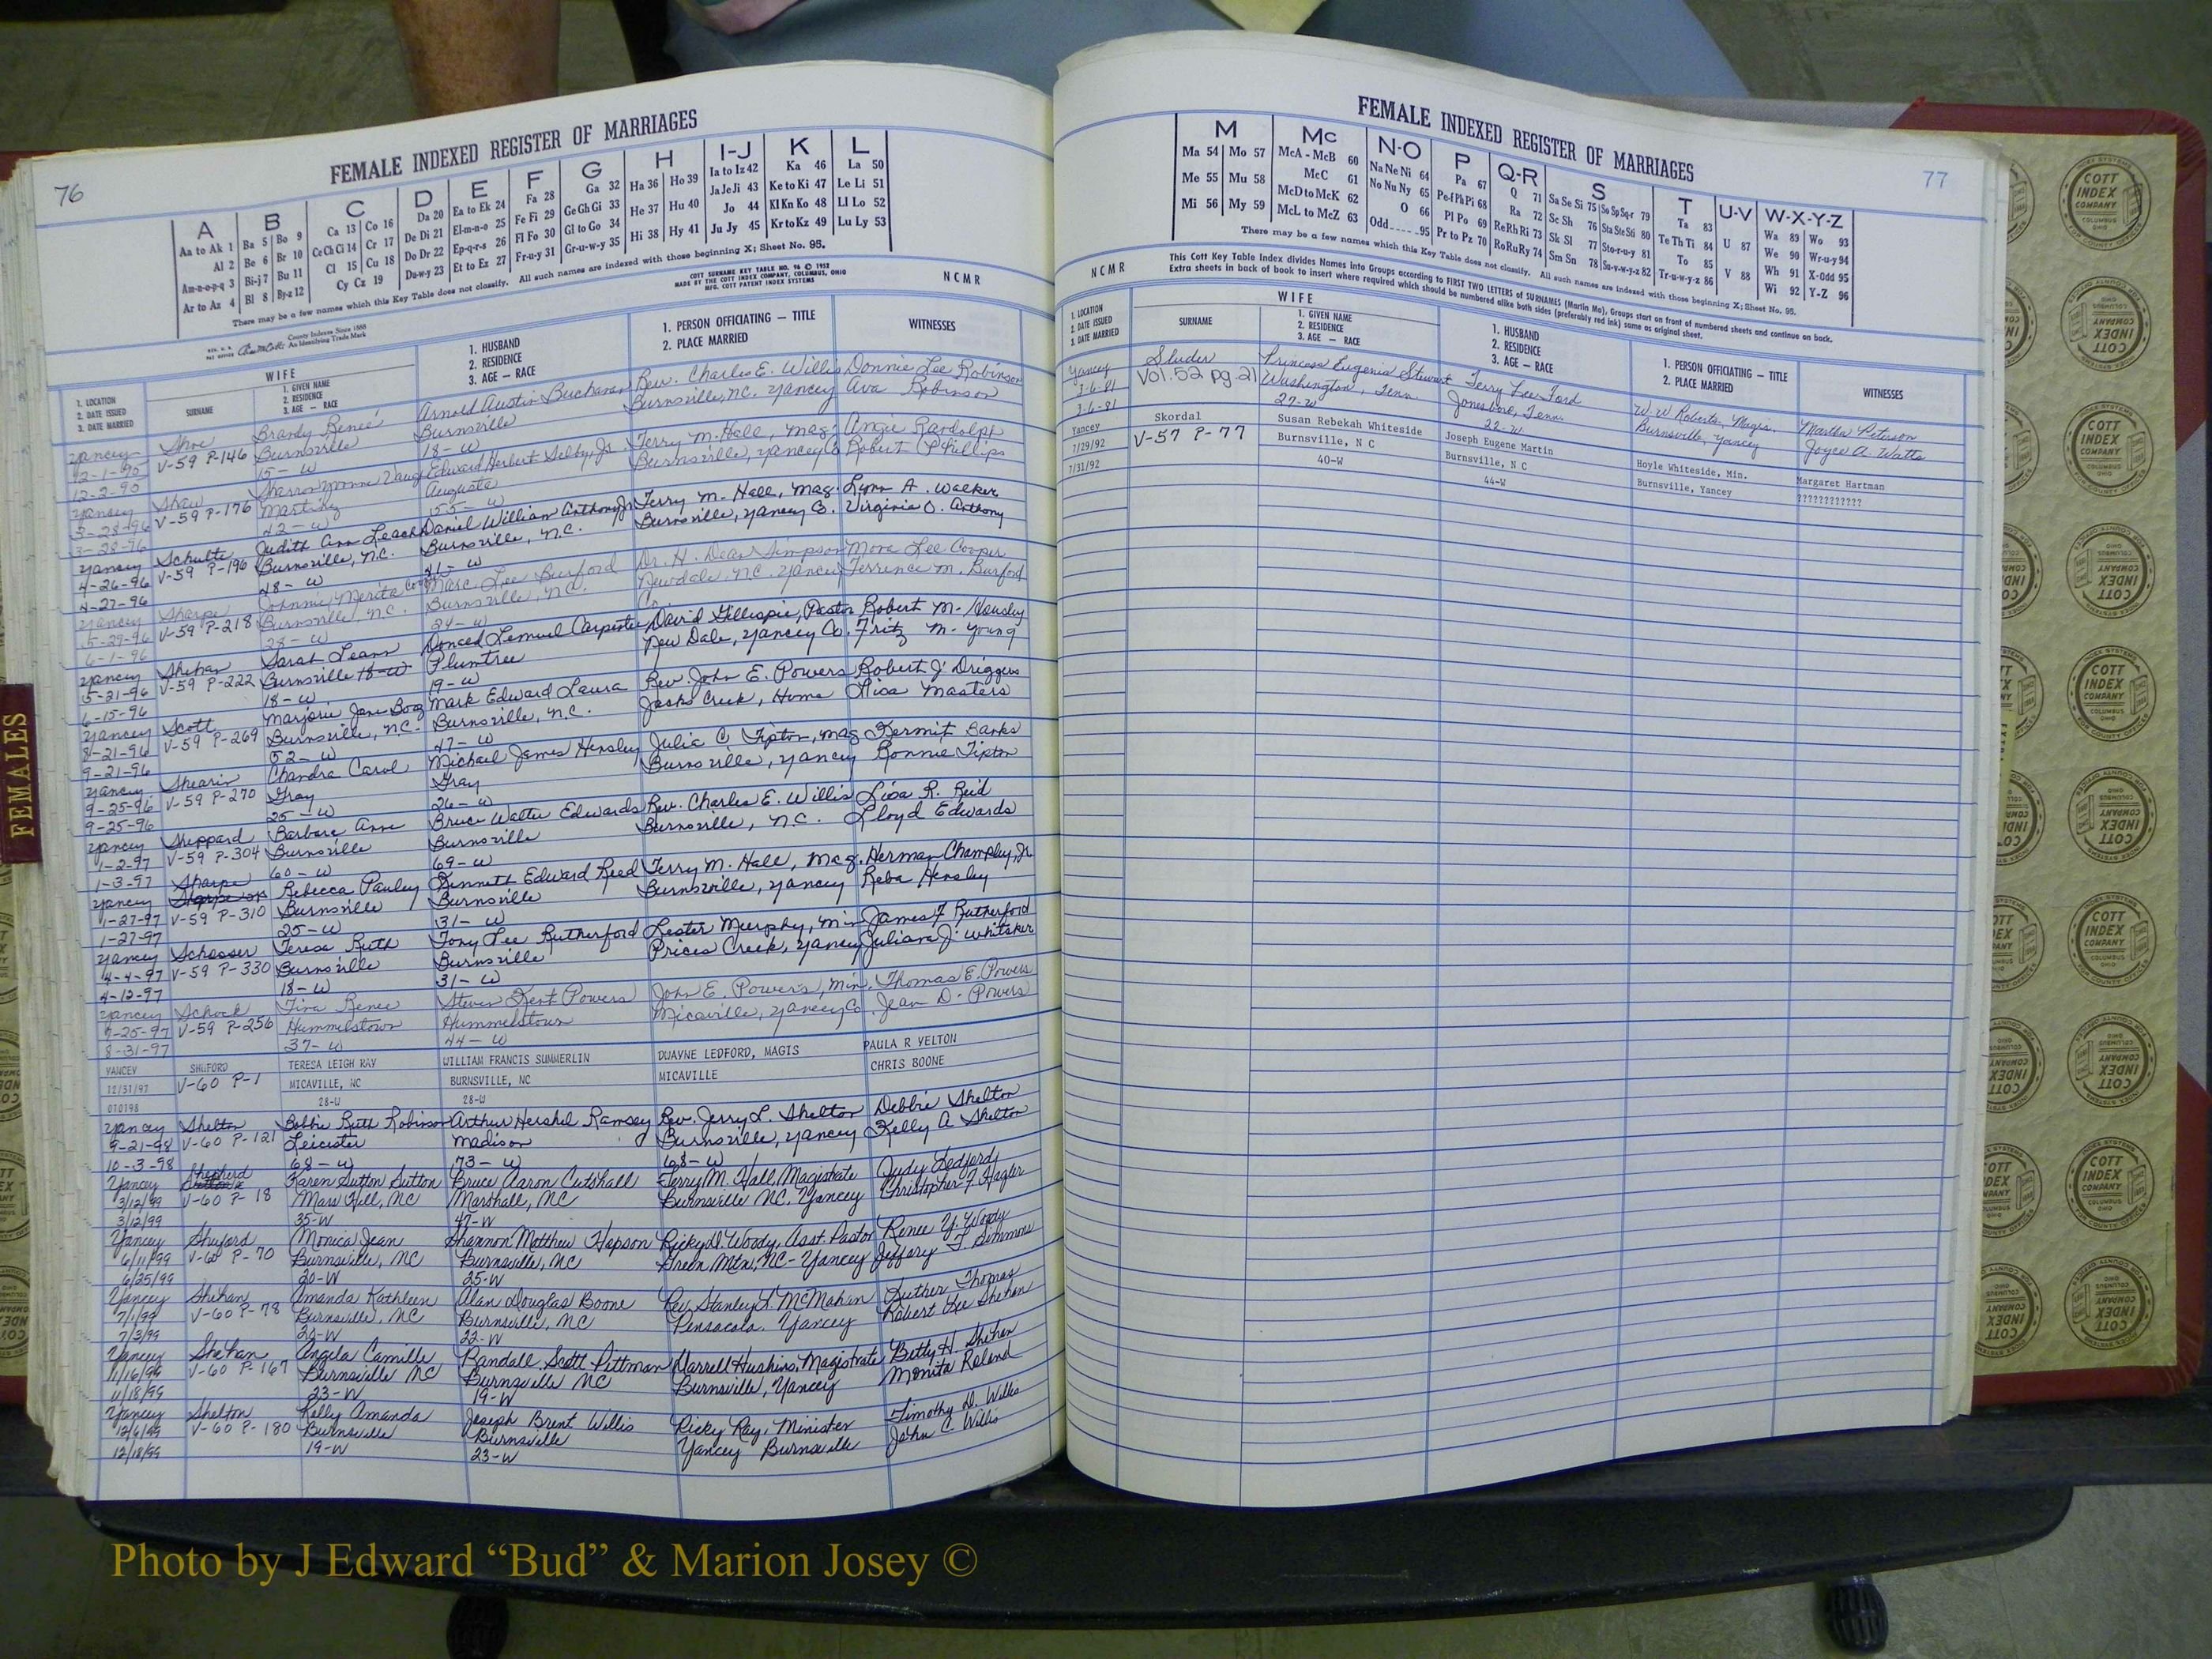 76
FEMALE INDEXED REGISTER OF MARRIAGES
A B C D E F G H I-J K L
Aa to Ak 1 Ba 5 Bo 9 Ca 13 Co 16 Da 20 Ea to Ek 24 Fa 28 Ga 32 Ha 36 Ho 39 Ia to Iz 42 Ka 46 La 50
Al 2 Be 6 Br 10 Ce Ch Ci 14 Cr 17 De Di 21 El-m-n-o 25 Fe Fi 29 Ge Gh Gi 33 He 37 Hu 40 Ja Je Ji 43 Ke to Ki 47 Le Li 51
Am-n-o-p-q 3 Bi-j 7 Bu 11 Cl 15 Cu 18 Do Dr 22 Ep-q-r-s 26 Fl Fo 30 Gl to Go 34 Hi 38 Hy 41 Jo 44 Kl Kn Ko 48 Ll Lo 52
Ar to Az 4 Bl 8 By-z 12 Cy Cz 19 Du-w-y 23 Et to Ez 27 Fr-u-y 31 Gr-u-w-y 35 Ju Jy 45 Kr to Kz 49 Lu Ly 53
There may be a few names which this Key Table does not classify. All such names are indexed with those beginning X; Sheet No. 95.
COTT SURNAME KEY TABLE NO. 96 © 1952
MADE BY THE COTT INDEX COMPANY, COLUMBUS, OHIO
MFG. COTT PATENT INDEX SYSTEMS
N C M R
County Indexes Since 1888
An Identifying Trade Mark
WIFE
1. LOCATION
2. DATE ISSUED
3. DATE MARRIED
SURNAME
1. GIVEN NAME
2. RESIDENCE
3. AGE — RACE
1. HUSBAND
2. RESIDENCE
3. AGE — RACE
1. PERSON OFFICIATING — TITLE
2. PLACE MARRIED
WITNESSES
Yancey Shoe Brandy Reneé Arnold Austin Buchanan Rev. Charles E. Willis Donnie Lee Robinson
12-1-95 V-59 P-146 Burnsville Burnsville Burnsville, NC. Yancey Ava Robinson
12-2-95 15-W 18-W
Yancey Shaw Sharron Yvonne Edward Herbert Selby, Jr. Terry M. Hall, Mag. Angie Randolph
3-28-96 V-59 P-176 Augusta Burnsville, Yancey Co Robert P Phillips
3-28-96 42-W 55-W
Yancey Schulte Judith Ann Leach Daniel William Anthony Jr Terry M. Hall, Mag. Lynn A. Walker
4-26-96 V-59 P-196 Burnsville, N.C. Burnsville, N.C. Burnsville, Yancey Co. Virginia O. Anthony
4-27-96 48-W 41-W
Yancey Sharpe Johnnie Merita Marc Lee Burford Dr. H. Dean Simpson Mona Lee Cooper
5-29-96 V-59 P-218 Burnsville, N.C. Burnsville, N.C. Newdale, NC. Yancey Co. Terrence M. Burford
6-1-96 28-W 24-W
Yancey Shehan Sarah Leann Donced Lemuel Carpenter David Gillespie, Pastor Robert M. Housley
5-21-96 V-59 P-222 Burnsville 18-W Plumtree New Dale, Yancey Co. Fritz M. Young
6-15-96 18-W 19-W
Yancey Scott Marjorie Jane Boog Mark Edward Laura Rev. John E. Powers Robert J. Driggers
8-21-96 V-59 P-269 Burnsville, N.C. Burnsville, N.C. Jacks Creek, Home Lisa Masters
9-21-96 52-W 47-W
Yancey Shearin Chandra Carol Michael James Hensley Julia C Tipton, Mag Kermit Banks
9-25-96 V-59 P-270 Gray Gray Burnsville, Yancey Bonnie Tipton
9-25-96 25-W 26-W
Yancey Sheppard Barbara Ann Bruce Walter Edwards Rev. Charles E. Willis Lisa R. Reid
1-2-97 V-59 P-304 Burnsville Burnsville Burnsville, N.C. Lloyd Edwards
1-3-97 60-W 69-W
Yancey Sharpe Rebecca Pauley Kenneth Edward Reed Terry M. Hall, Mag. Herman Champley, Jr.
1-27-97 V-59 P-310 Burnsville Burnsville Burnsville, Yancey Reba Hensley
1-27-97 25-W 31-W
Yancey Schosser Teresa Ruth Tony Lee Rutherford Lester Murphy, Min James F Rutherford
4-4-97 V-59 P-330 Burnsville Burnsville Prices Creek, Yancey Juliana J. Whitaker
4-12-97 18-W 31-W
Yancey Schock Tina Renee Steven Kent Powers John E. Powers, Min. Thomas E. Powers
7-25-97 V-59 P-256 Hummelstown Hummelstown Micaville, Yancey Co. Jean D. Powers
8-31-97 37-W 44-W
YANCEY SHUFORD TERESA LEIGH RAY WILLIAM FRANCIS SUMMERLIN DWAYNE LEDFORD, MAGIS PAULA R YELTON
12/31/97 V-60 P-1 MICAVILLE, NC BURNSVILLE, NC MICAVILLE CHRIS BOONE
010198 28-W 28-W
Yancey Shelton Bobbie Ruth Robinson Arthur Hershel Ramsey Rev. Jerry L. Shelton Debbie Shelton
9-21-98 V-60 P-121 Leicester Madison Burnsville, Yancey Kelly A Shelton
10-3-98 68-W 73-W 68-W
Yancey Shepherd Karen Sutton Sutton Bruce Aaron Cutshall Terry M. Hall, Magistrate Judy Ledford
3/12/99 V-60 P-18 Mars Hill, NC Marshall, NC Burnsville NC, Yancey Christopher F. Hagler
3/12/99 35-W 47-W
Yancey Shuford Monica Jean Shannon Matthew Hopson Ricky D. Woody, Asst Pastor Renee Y. Woody
6/11/99 V-60 P-70 Burnsville, NC Burnsville, NC Green Mtn, NC - Yancey Jeffery T. Simmons
6/25/99 20-W 25-W
Yancey Shehan Amanda Kathleen Alan Douglas Boone Rev Stanley L. McMahan Luther Thomas
7/1/99 V-60 P-78 Burnsville, NC Burnsville, NC Pensacola, Yancey Robert Lee Shehan
7/3/99 20-W 22-W
Yancey Shehan Angela Camille Randall Scott Pittman Darrell Huskins, Magistrate Betty H. Shehan
11/16/99 V-60 P-167 Burnsville NC Burnsville NC Burnsville, Yancey Monita Roland
11/18/99 23-W 19-W
Yancey Shelton Kelly Amanda Joseph Brent Willis Ricky Ray, Minister Timothy D. Willis
12/6/99 V-60 P-180 Burnsville Burnsville Yancey Burnsville John C. Willis
12/18/99 19-W 23-W
FEMALES
FEMALE INDEXED REGISTER OF MARRIAGES
77
M Mc N-O P Q-R S T U-V W-X-Y-Z
Ma 54 Mo 57 McA - McB 60 Na Ne Ni 64 Pa 67 Q 71 Sa Se Si 75 So Sp Sq-r 79 Ta 83 U 87 Wa 89 Wo 93
Me 55 Mu 58 McC 61 No Nu Ny 65 Pe-f Ph Pi 68 Ra 72 Sc Sh 76 Sta Ste Sti 80 Te Th Ti 84 V 88 We 90 Wr-u-y 94
Mi 56 My 59 McD to McK 62 O 66 Pl Po 69 Re Rh Ri 73 Sk Sl 77 Sto-r-u-y 81 To 85 Wh 91 X-Odd 95
McL to McZ 63 Odd 95 Pr to Pz 70 Ro Ru Ry 74 Sm Sn 78 Su-v-w-y-z 82 Tr-u-w-y-z 86 Wi 92 Y-Z 96
There may be a few names which this Key Table does not classify. All such names are indexed with those beginning X; Sheet No. 95.
N C M R
This Cott Key Table Index divides Names into Groups according to FIRST TWO LETTERS of SURNAMES (Martin Ma), Groups start on front of numbered sheets and continue on back.
Extra sheets in back of book to insert where required which should be numbered alike both sides (preferably red ink) same as original sheet.
WIFE
1. LOCATION
2. DATE ISSUED
3. DATE MARRIED
SURNAME
1. GIVEN NAME
2. RESIDENCE
3. AGE — RACE
1. HUSBAND
2. RESIDENCE
3. AGE — RACE
1. PERSON OFFICIATING — TITLE
2. PLACE MARRIED
WITNESSES
Yancey Sluder Princess Eugenia Stewart Terry Lee Ford W. W. Roberts, Magis. Martha Peterson
3-6-81 Vol. 52 pg. 21 Washington, Tenn. Jonesboro, Tenn. Burnsville, Yancey Joyce A. Watts
3-6-81 27-W 22-W
Yancey Skordal Susan Rebekah Whiteside Joseph Eugene Martin Hoyle Whiteside, Min. Margaret Hartman
7/29/92 V-57 P-77 Burnsville, N C Burnsville, N C Burnsville, Yancey ????????????
7/31/92 40-W 44-W
COTT INDEX COMPANY COLUMBUS OHIO
Photo by J Edward “Bud” & Marion Josey ©